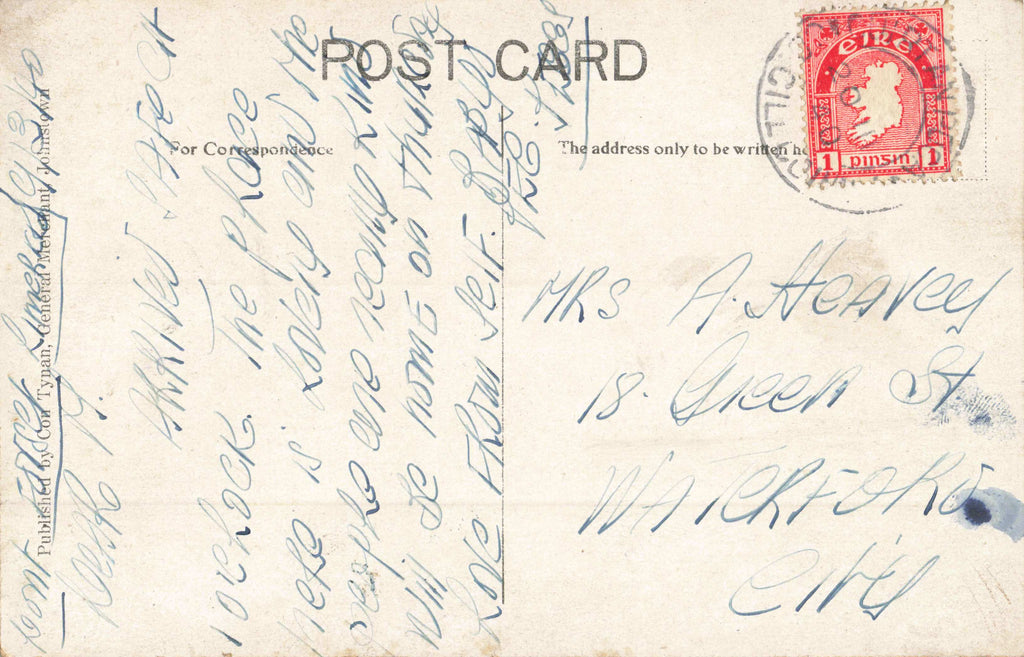 POST CARD
For Correspondence
The address only to be written he
EIRE
1 pinsin 1
Published by Con Tynan, General Merchant, Johnstown
Dont
Dear M.
ARRIVED SAFE at
10 Oclock. The place
here is Lovely and the
people are nearly kind
Will be home on Thursday
Love from self.
MRS A. Heavey
18. Green St.
WATERFORD
City